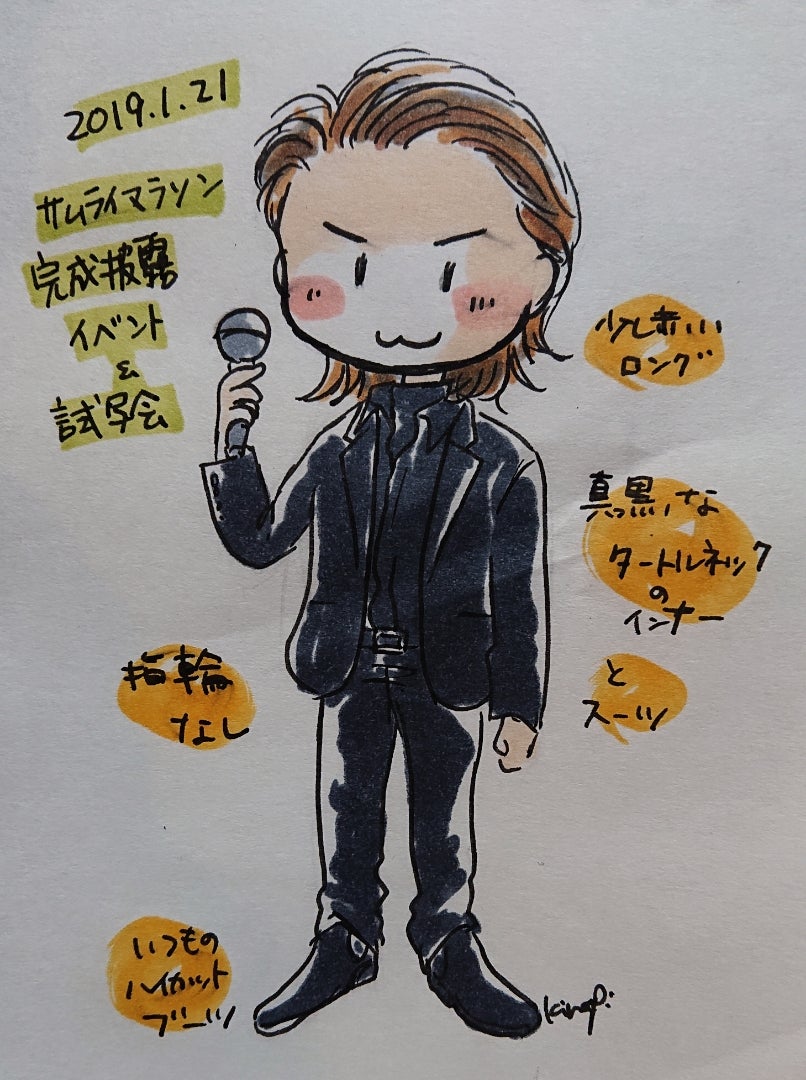 2019.1.21
サムライマラソン
完成披露
イベント
&
試写会
少し赤いい
ロング
真っ黒な
タートルネック
の
インナー
と
スーツ
指輪
なし
いつもの
ハイカット
ブーツ